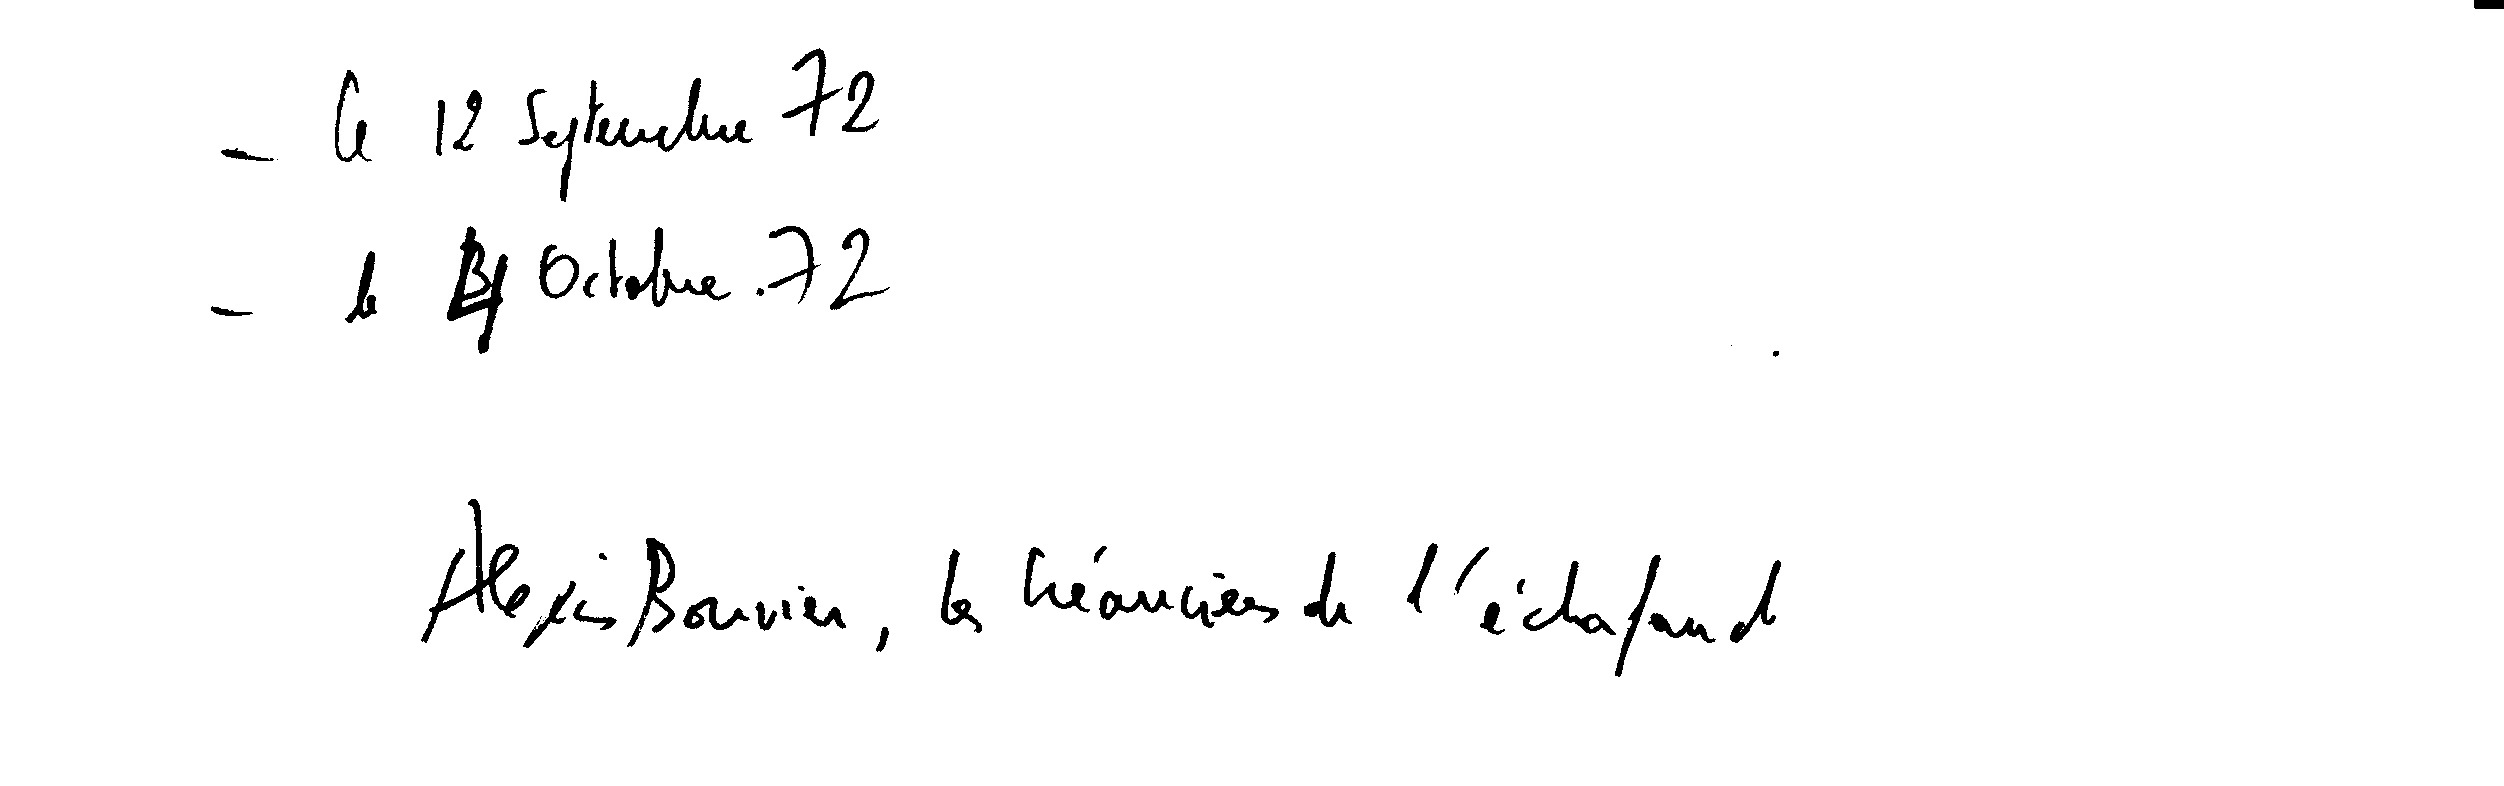 - Le 12 Septembre 72
- le Octobre.72
Alexis Bouvier, les Créanciers de l'échafaud